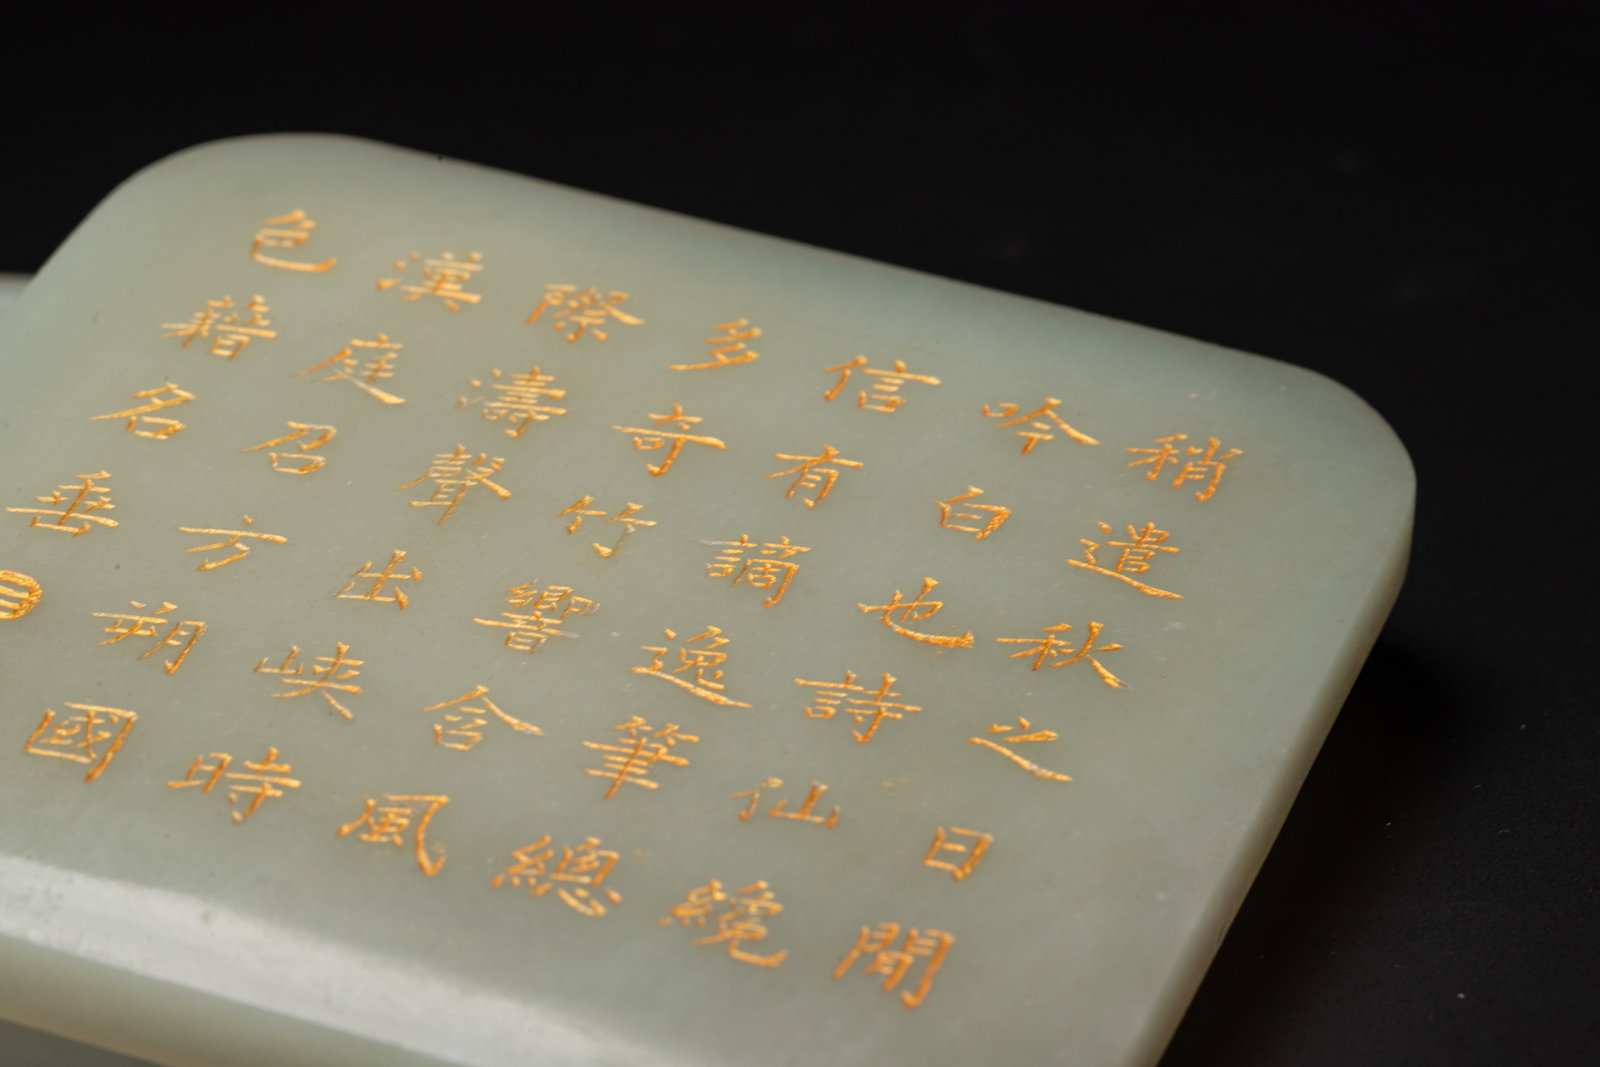 稍遣秋之日閒
吟白也詩仙纔
信有謫逸筆總
多奇竹響含風
際濤聲出峽時
漢庭召方朔國
色籍名垂